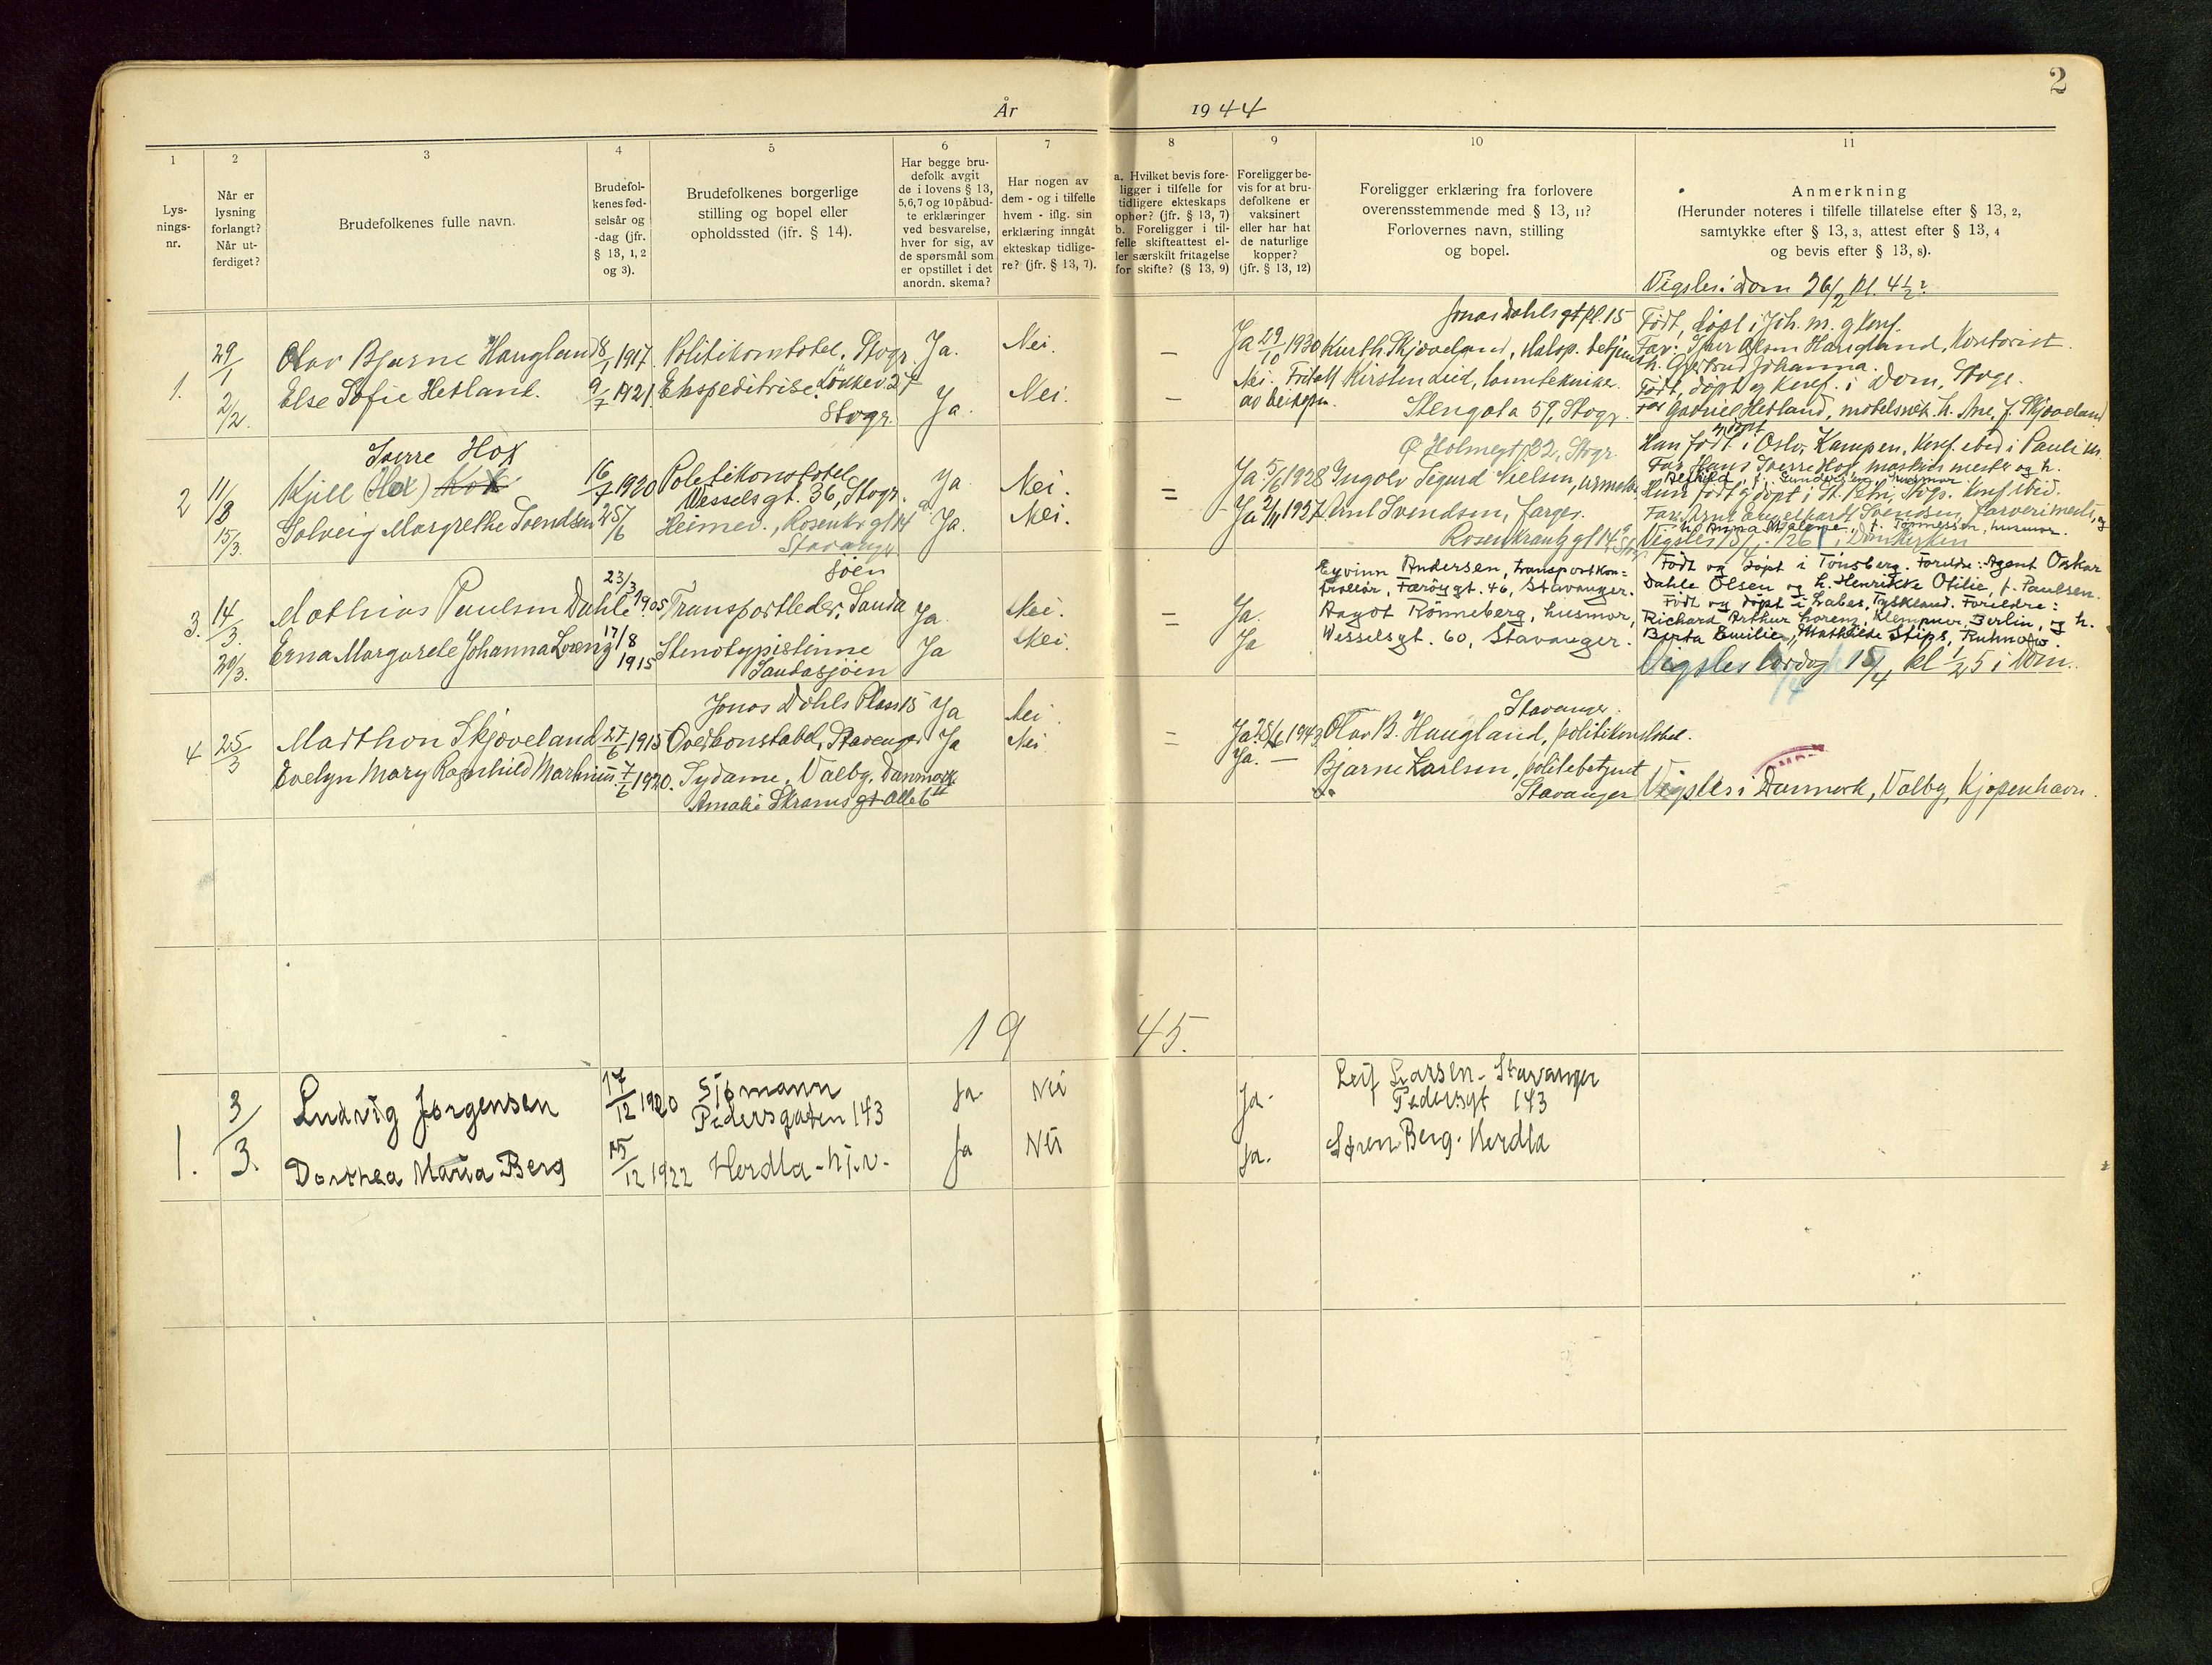 2
År
1944
1
2
3
4
5
6
7
8
9
10
11
Lys-
nings-
nr.
Når er
lysning
forlangt?
Når ut-
ferdiget?
Brudefolkenes fulle navn.
Brudefol-
kenes fød-
selsår og
-dag (jfr.
§ 13, 1, 2
og 3).
Brudefolkenes borgerlige
stilling og bopel eller
opholdssted (jfr. § 14).
Har begge bru-
defolk avgit
de i lovens § 13,
5,6,7 og 10 påbud-
te erklæringer
ved besvarelse,
hver for sig, av
de spørsmål som
er opstillet i det
anordn. skema?
Har nogen av
dem - og i tilfelle
hvem - iflg. sin
erklæring inngåt
ekteskap tidlige-
re? (jfr. § 13, 7).
a. Hvilket bevis fore-
ligger i tilfelle for
tidligere ekteskaps
ophør? (jfr. § 13, 7)
b. Foreligger i til-
felle skifteattest el-
ler særskilt fritagelse
for skifte? (§ 13, 9)
Foreligger be-
vis for at bru-
defolkene er
vaksinert
eller har hat
de naturlige
kopper?
(jfr. § 13, 12)
Foreligger erklæring fra forlovere
overensstemmende med § 13, 11?
Forlovernes navn, stilling
og bopel.
Anmerkning
(Herunder noteres i tilfelle tillatelse efter § 13, 2,
samtykke efter § 13, 3, attest efter § 13, 4
og bevis efter § 13, 8).
Vigsles i Dom 26/2 kl. 4½
1.
29/1
2/2.
Olav Bjarne Haugland
Else Sofie Hetland.
8/1 1917.
9/7 1921.
Politikonstabel, Stvgr.
Ekspeditrise. Løkkev 27
Stvgr.
Ja.
Ja.
Nei.
Nei.
–
–
Ja 29/10 1930
Nei. Fritatt
av
Jonas Dahls gt pl. 15
Kurth Skjoveland, betjent
Kirsten Lied, tanntekniker.
Stengata 59, Stvgr.
Født, døpt i Joh. m. g konf.
Far: Haugland, Kontorist
h. Gjertrud Johanna.
Født, døpt og konf. i Dom, Stvgr.
Far Gabriel Hetland, møbelsnek. h. Ane, f. Skjoveland
2
11/3
15/3.
Sverre Hox
Kjell (Hox) Kox
Solveig Margrethe Svendsen
16/7 1920
25/6
Politikonstabel
Wessels gt. 36, Stvgr.
Heimev., Rosenkr gt 14
Stavanger
Ja
Ja.
Nei.
Nei.
=
Ja 5/6 1928
Ja 2/11 1927
Ø Holmegt 32, Stvgr
Ingolv Sigurd Nielsen, urmaker
Arnt Svendsen, farger.
Rosenkrantz gt 14
Han født i Oslo, Kampen, Konf. ibid i Pauli m.
Far Hans Sverre Hox, maskinmester og h.
Hun født og døpt i St. Petri, Stvgr. Konf ibid.
Far: Arnt Engelhardt Svendsen, farverimester, og
h. Anna Malene, f. Tønnessen, husmor.
3.
14/3.
30/3.
Mathias Paulsen Dahle
Erna Margarete Johanna Lorenz
23/3 1905
17/8 1915
sjøen
Transportleder, Sauda
Stenotypistinne
Saudasjøen
Ja
Ja
Nei.
Nei.
=
Ja.
Ja
Eyvinn Andersen, transportkon=
trollør, Færøygt. 46, Stavanger.
Aagot Rönneberg, husmor,
Wesselsgt. 60, Stavanger.
Født og døpt i Tönsberg. Foreldre: Agent Oskar
Dahle Olsen og h. Henrikke Otilie, f. Paulsen.
Født og døpt i Labes, Tyskland. Foreldre:
Richard Arthur Lorenz, Klempner, Berlin, og h.
Berta Emilie, Mathilde Stips, Ruhnow.
Vigsles lørdag 15/4 kl ½5 i Dom.
4
25/3
Marthon Skjoveland
Evelyn Mary Ragnhild Martinus.
27/6 1915
7/6 1920.
Jonas Dahls Plass 15
Overkonstabel, Stavanger
Sydame, Valby, Danmark
Amalie Skrams
Ja
Ja
Nei.
Nei
=
Ja 28/6 1943
Ja. –
Stavanger.
Olav B. Haugland, politikonstabel.
Bjarne Karlsen, politebetjent
Stavanger
Vigsles i Danmark, Valby, Kjøpenhavn.
19
45.
1.
3/3.
Ludvig Jørgensen
Dorthea Maria Berg
17/12 1920
15/12 1922
Sjømann
Pedersgaten 143
Herdla - hj.v.
Ja
Ja
Nei
Nei
Ja.
Ja.
Leif Larsen - Stavanger
Pedersgt 143
Søren Berg. Herdla